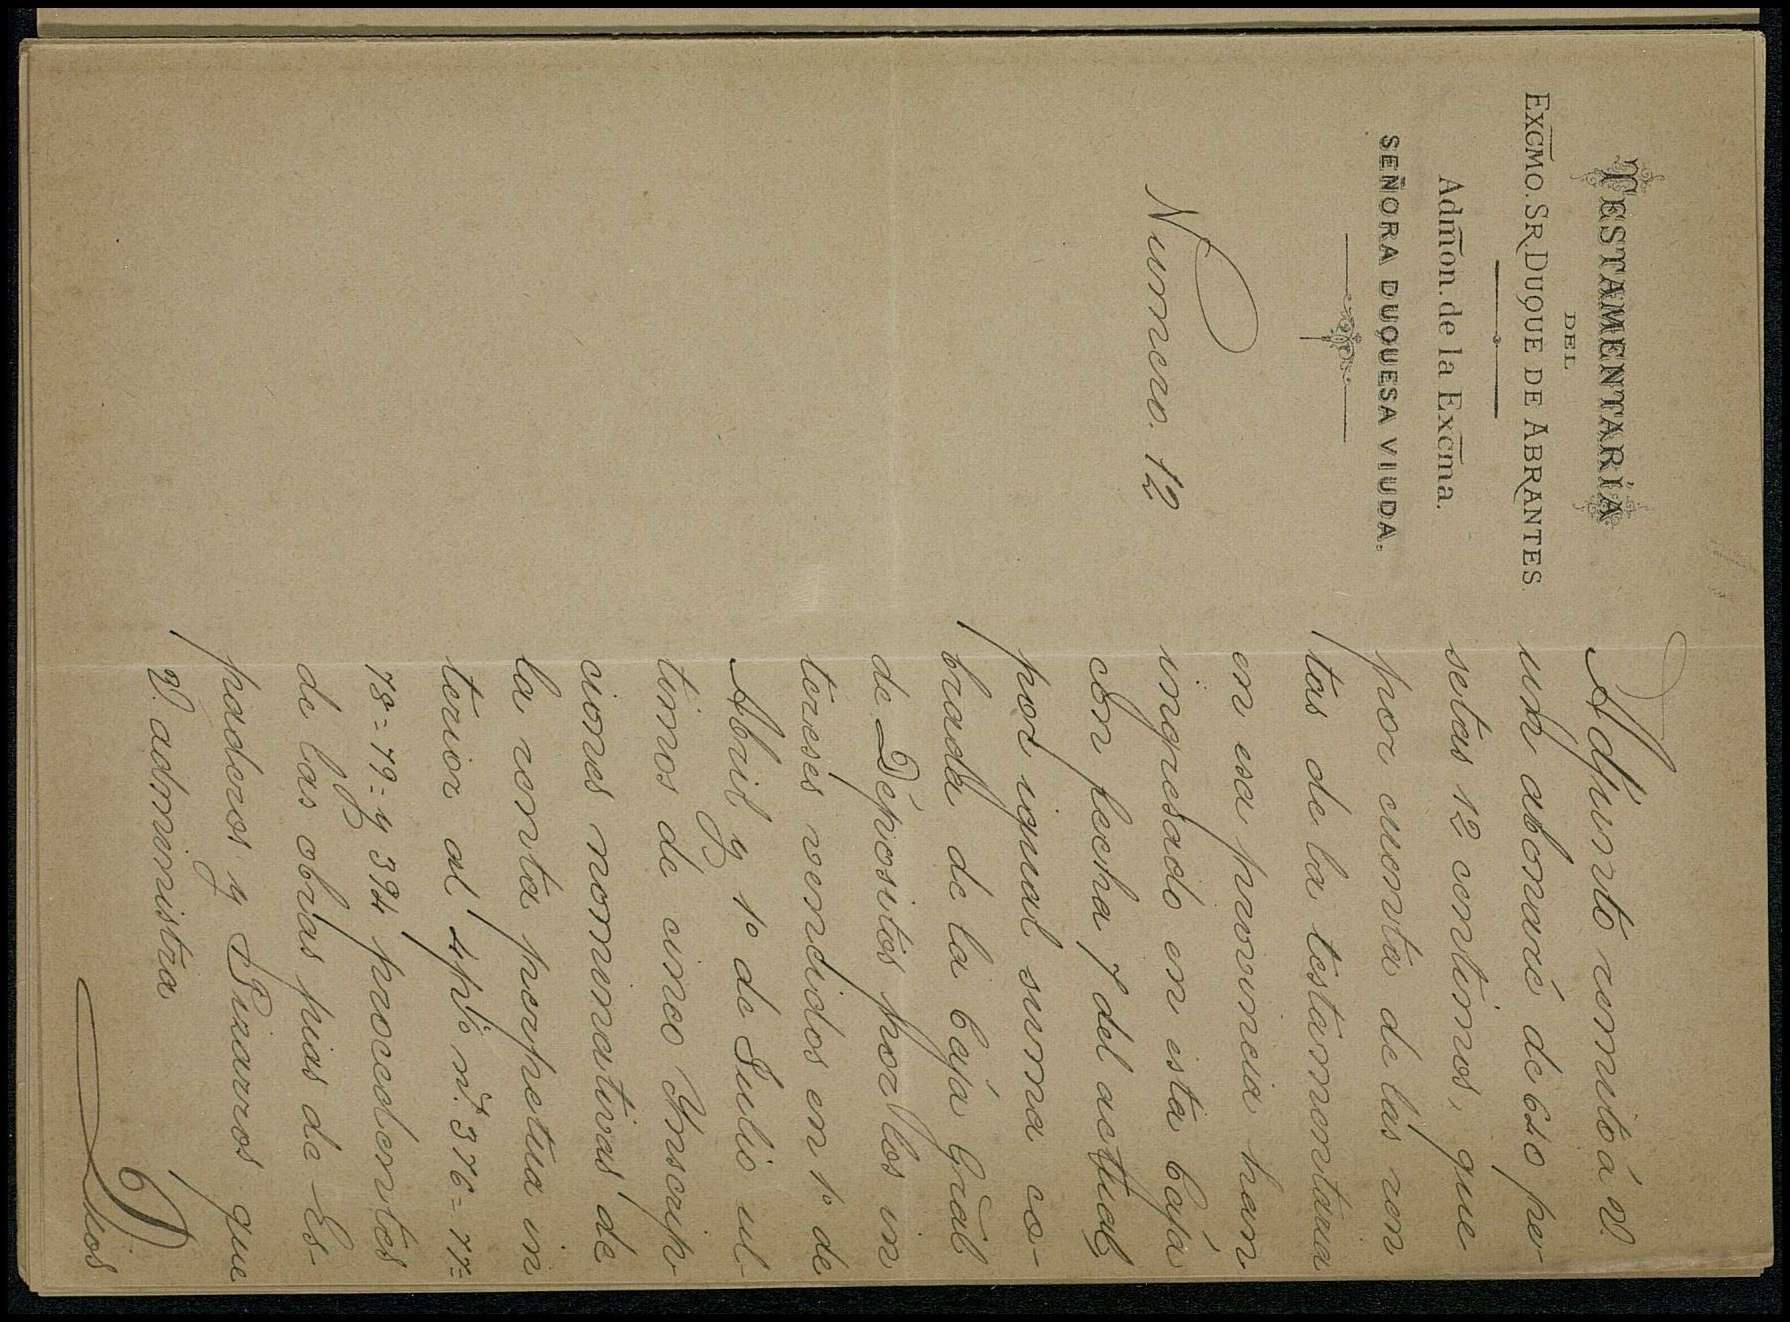 TESTAMENTARÍA
DEL
EXCMO. SR. DUQUE DE ABRANTES.
Admon. de la Excma.
SEÑORA DUQUESA VIUDA.
Numero. 12
Adjunto remito á V.
un abonaré de 610 pe-
setas 12 centimos, que
por cuenta de las ren
tas de la testamentaria
en esa provincia han
ingresado en esta Caja
con fecha 7 del actual,
por igual suma co-
brada de la Caja Gral
de Depositos por los in
tereses rendidos en 1º de
Abril y 1º de Julio ul-
timos de cinco Ynscrip
ciones nominativas de
la renta perpetua in
terior al 4 p% nº. 376=77=
78=79=y 394 procedentes
de las obras pias de Es-
paderos y Pizarros que
V. administra
Dios